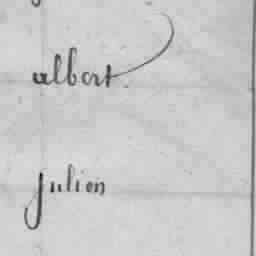 albert.
julien